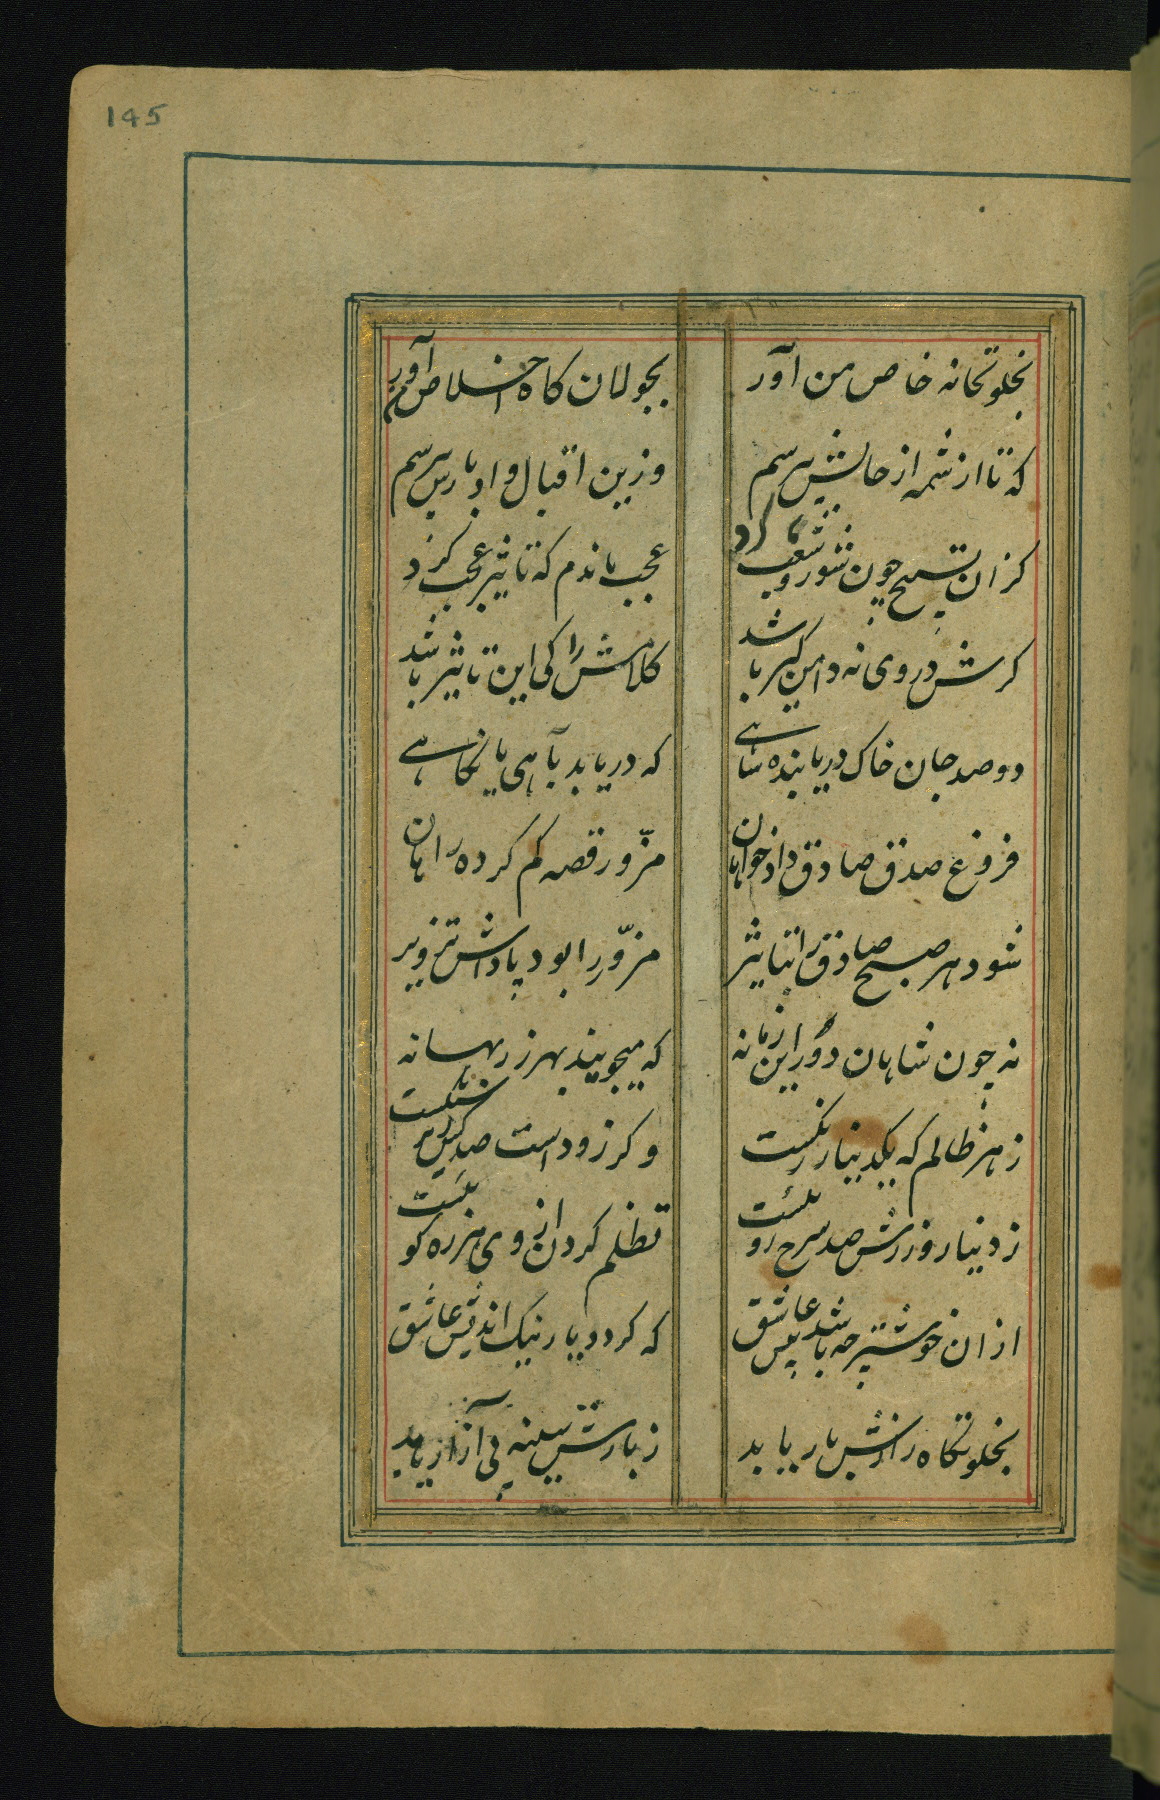 145
بخلوتخانه خاص من آور بجولان کاه اخلاص من آور
که تا از شمه از حالش پرسم وزین اقبال و ادبارش پرسم
کزان تسبیح چون شور و شغب کرد عجب ماندم که تاثیر عجب کرد
کرش دردی نه دامن کیر باشد کلامش را کی این تاثیر باشد
دو صد جان خاک دریابنده شاهی که دریابد بآهی یا نکاهی
فروغ صدق صادق دادخواهان مزوّر قصه کم کرده راهان
شود هر صبح صادق را تباثیر مزوّر را بود پاداش تزویر
نه چون شاهان دور این زمانه که میجویند بهر زر بهانه
ز هر ظالم که یکدینار زر رست وکر زو دست صد کین پرور شکست
ز دینار و زرش صد سرخ رویست تظلم کردن از وی هرزه کویست
ازان خوشتر چه باشد پیش عاشق که کردد یار نیک اندیش عاشق
بخلوتکاه رازش بار یابد ز بارش سینه بی آزار یابد